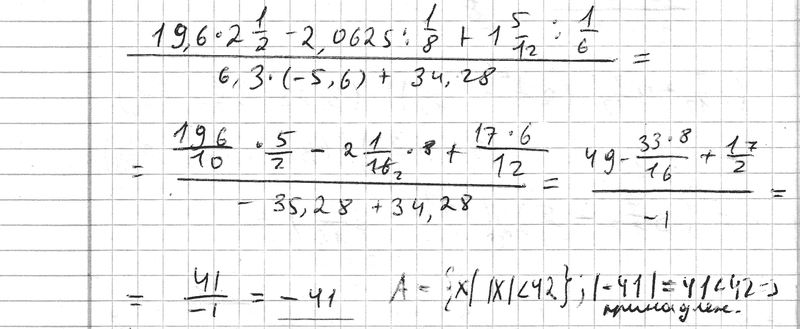 19,6·2 1/2 - 2,0625 : 1/8 + 1 5/12 : 1/6
6,3·(-5,6) + 34,28 =
= 196/10 · 5/2 - 2 1/16 · 8 + 17·6/12
- 35,28 + 34,28 =
49 - 33·8/16 + 17/2
-1 =
= 41/-1 = -41 A = {x| |x|<42}; |-41| = 41<42 →
принадлеж.